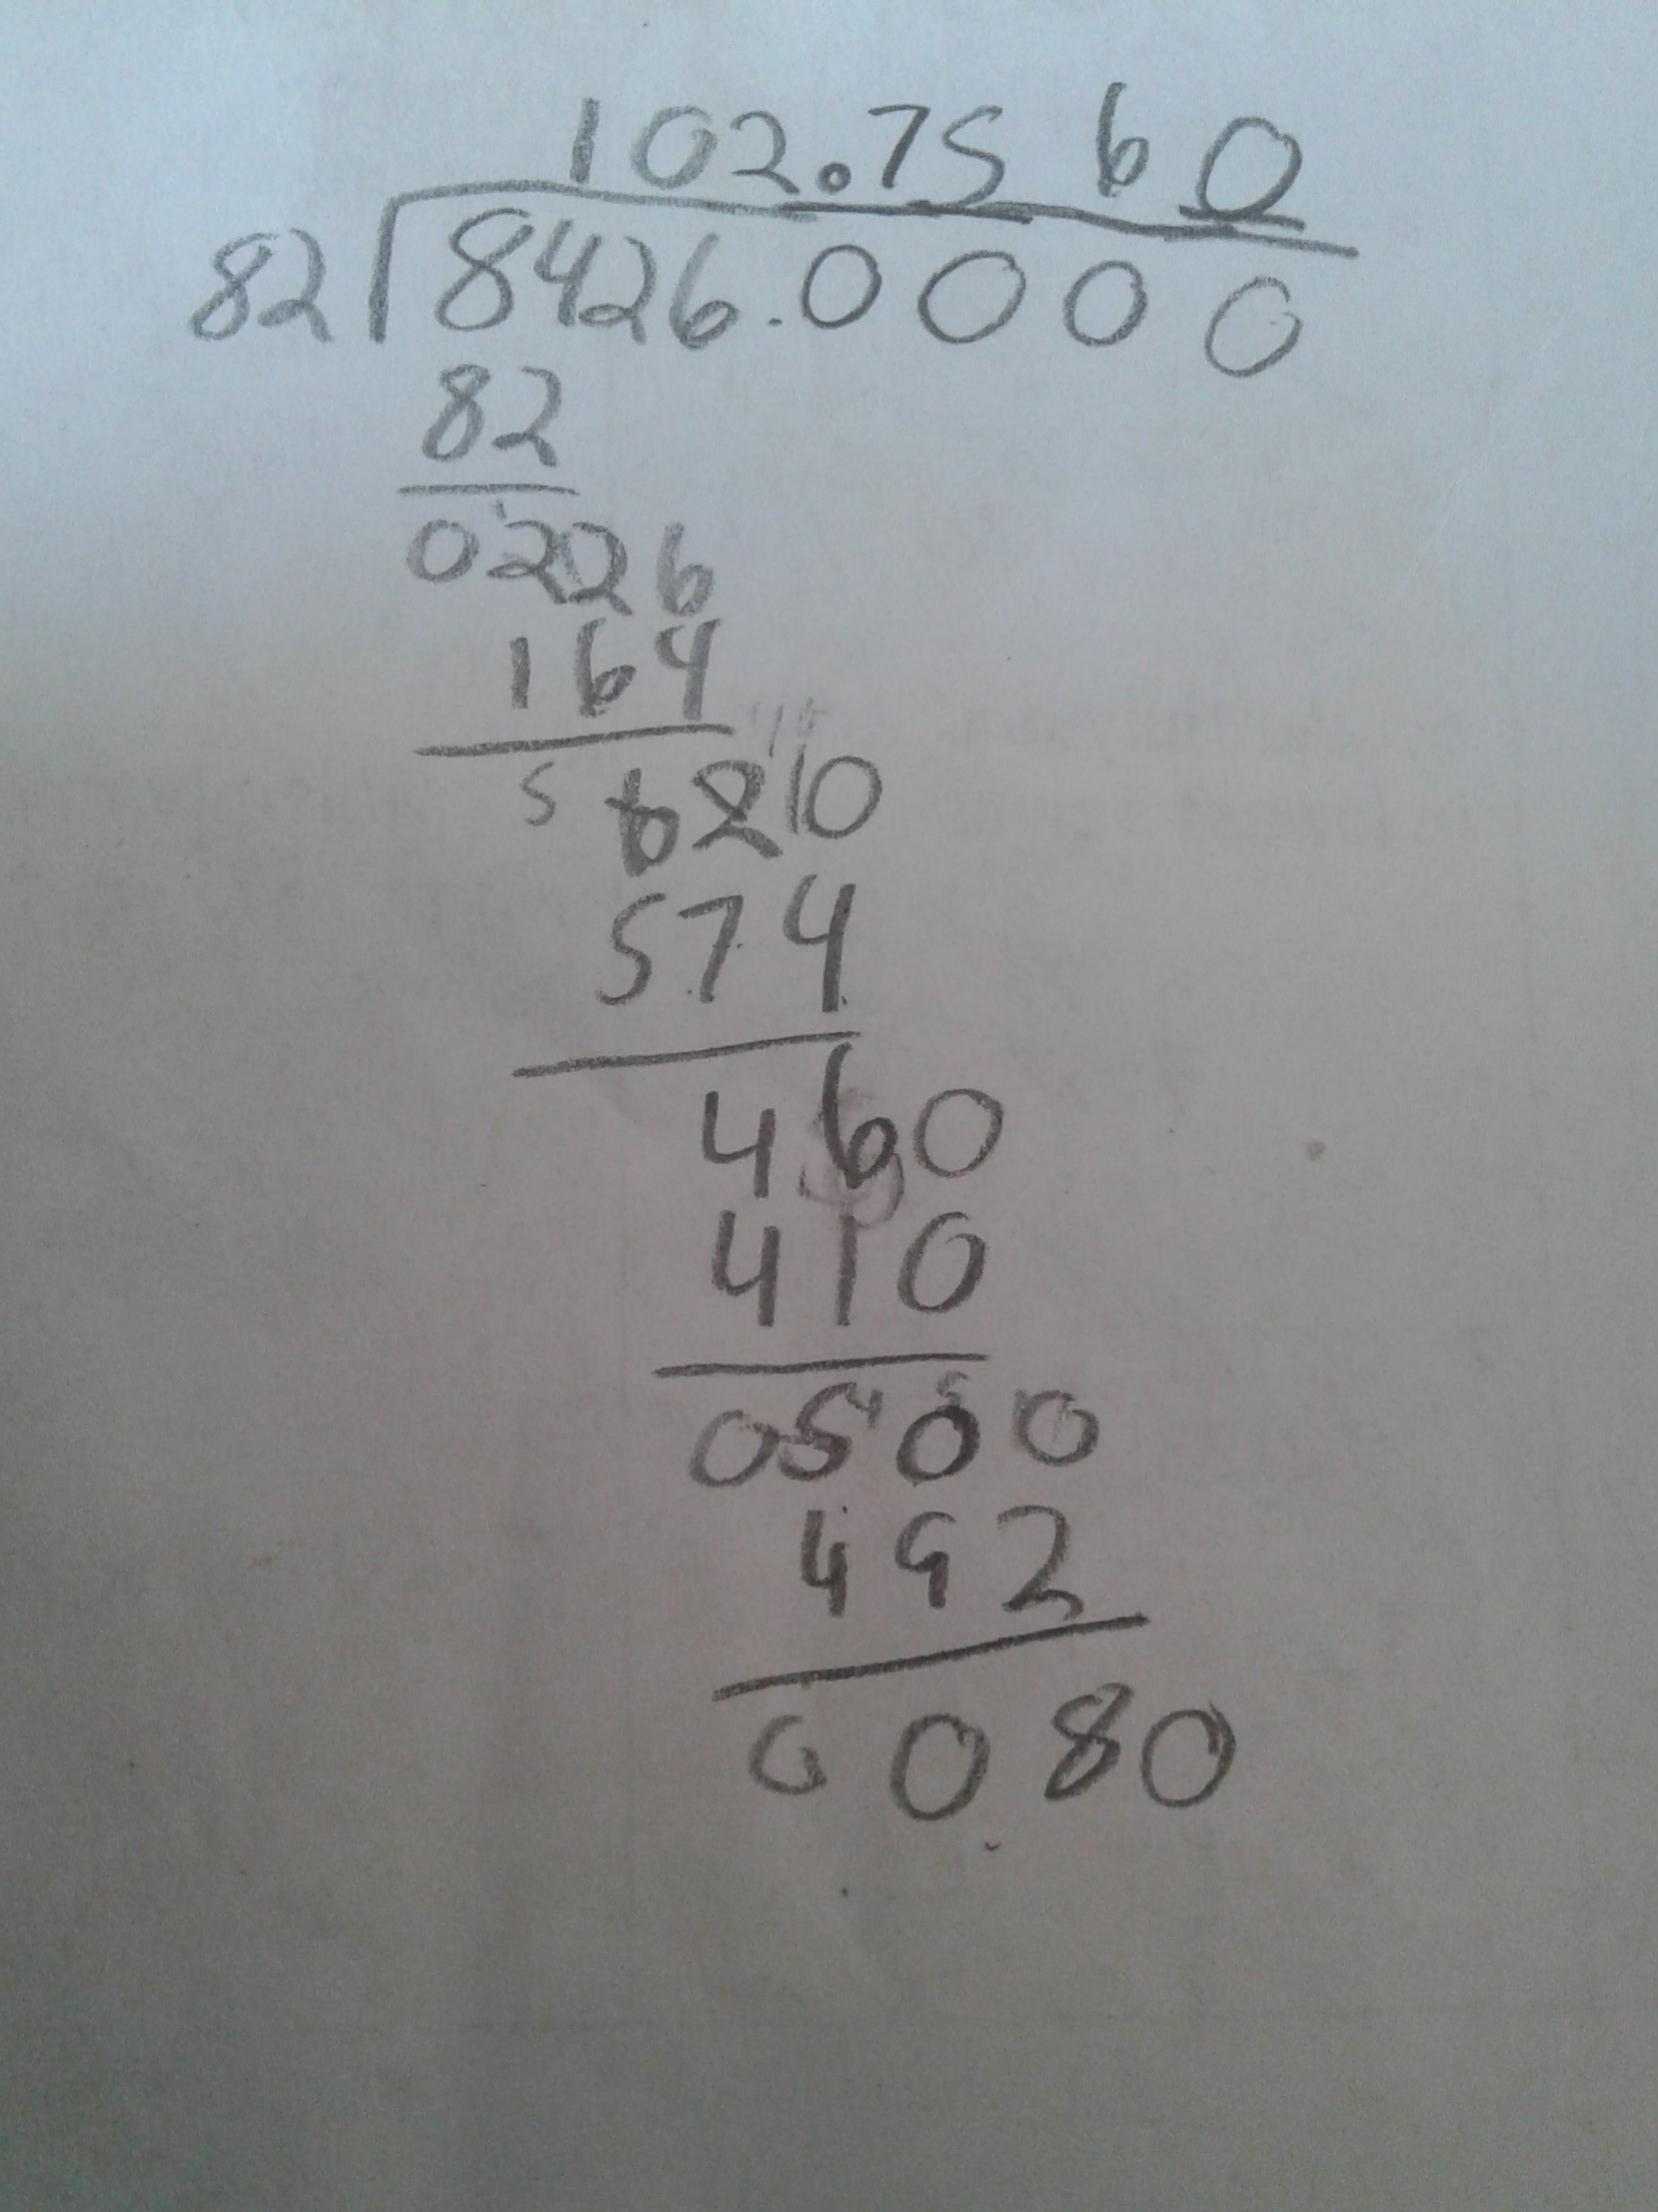 102.7560
82 8426.0000
82
0226
164
5 620
574
460
410
0500
492
0080